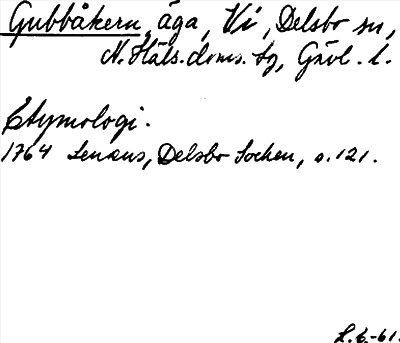 Gubbåkern, äga, Vi, Delsbo sn,
N. Häls. doms. sg, Gävl. l.
Etymologi.
1764 Lenæus, Delsbo Socken, s. 121.
L.b.-61.